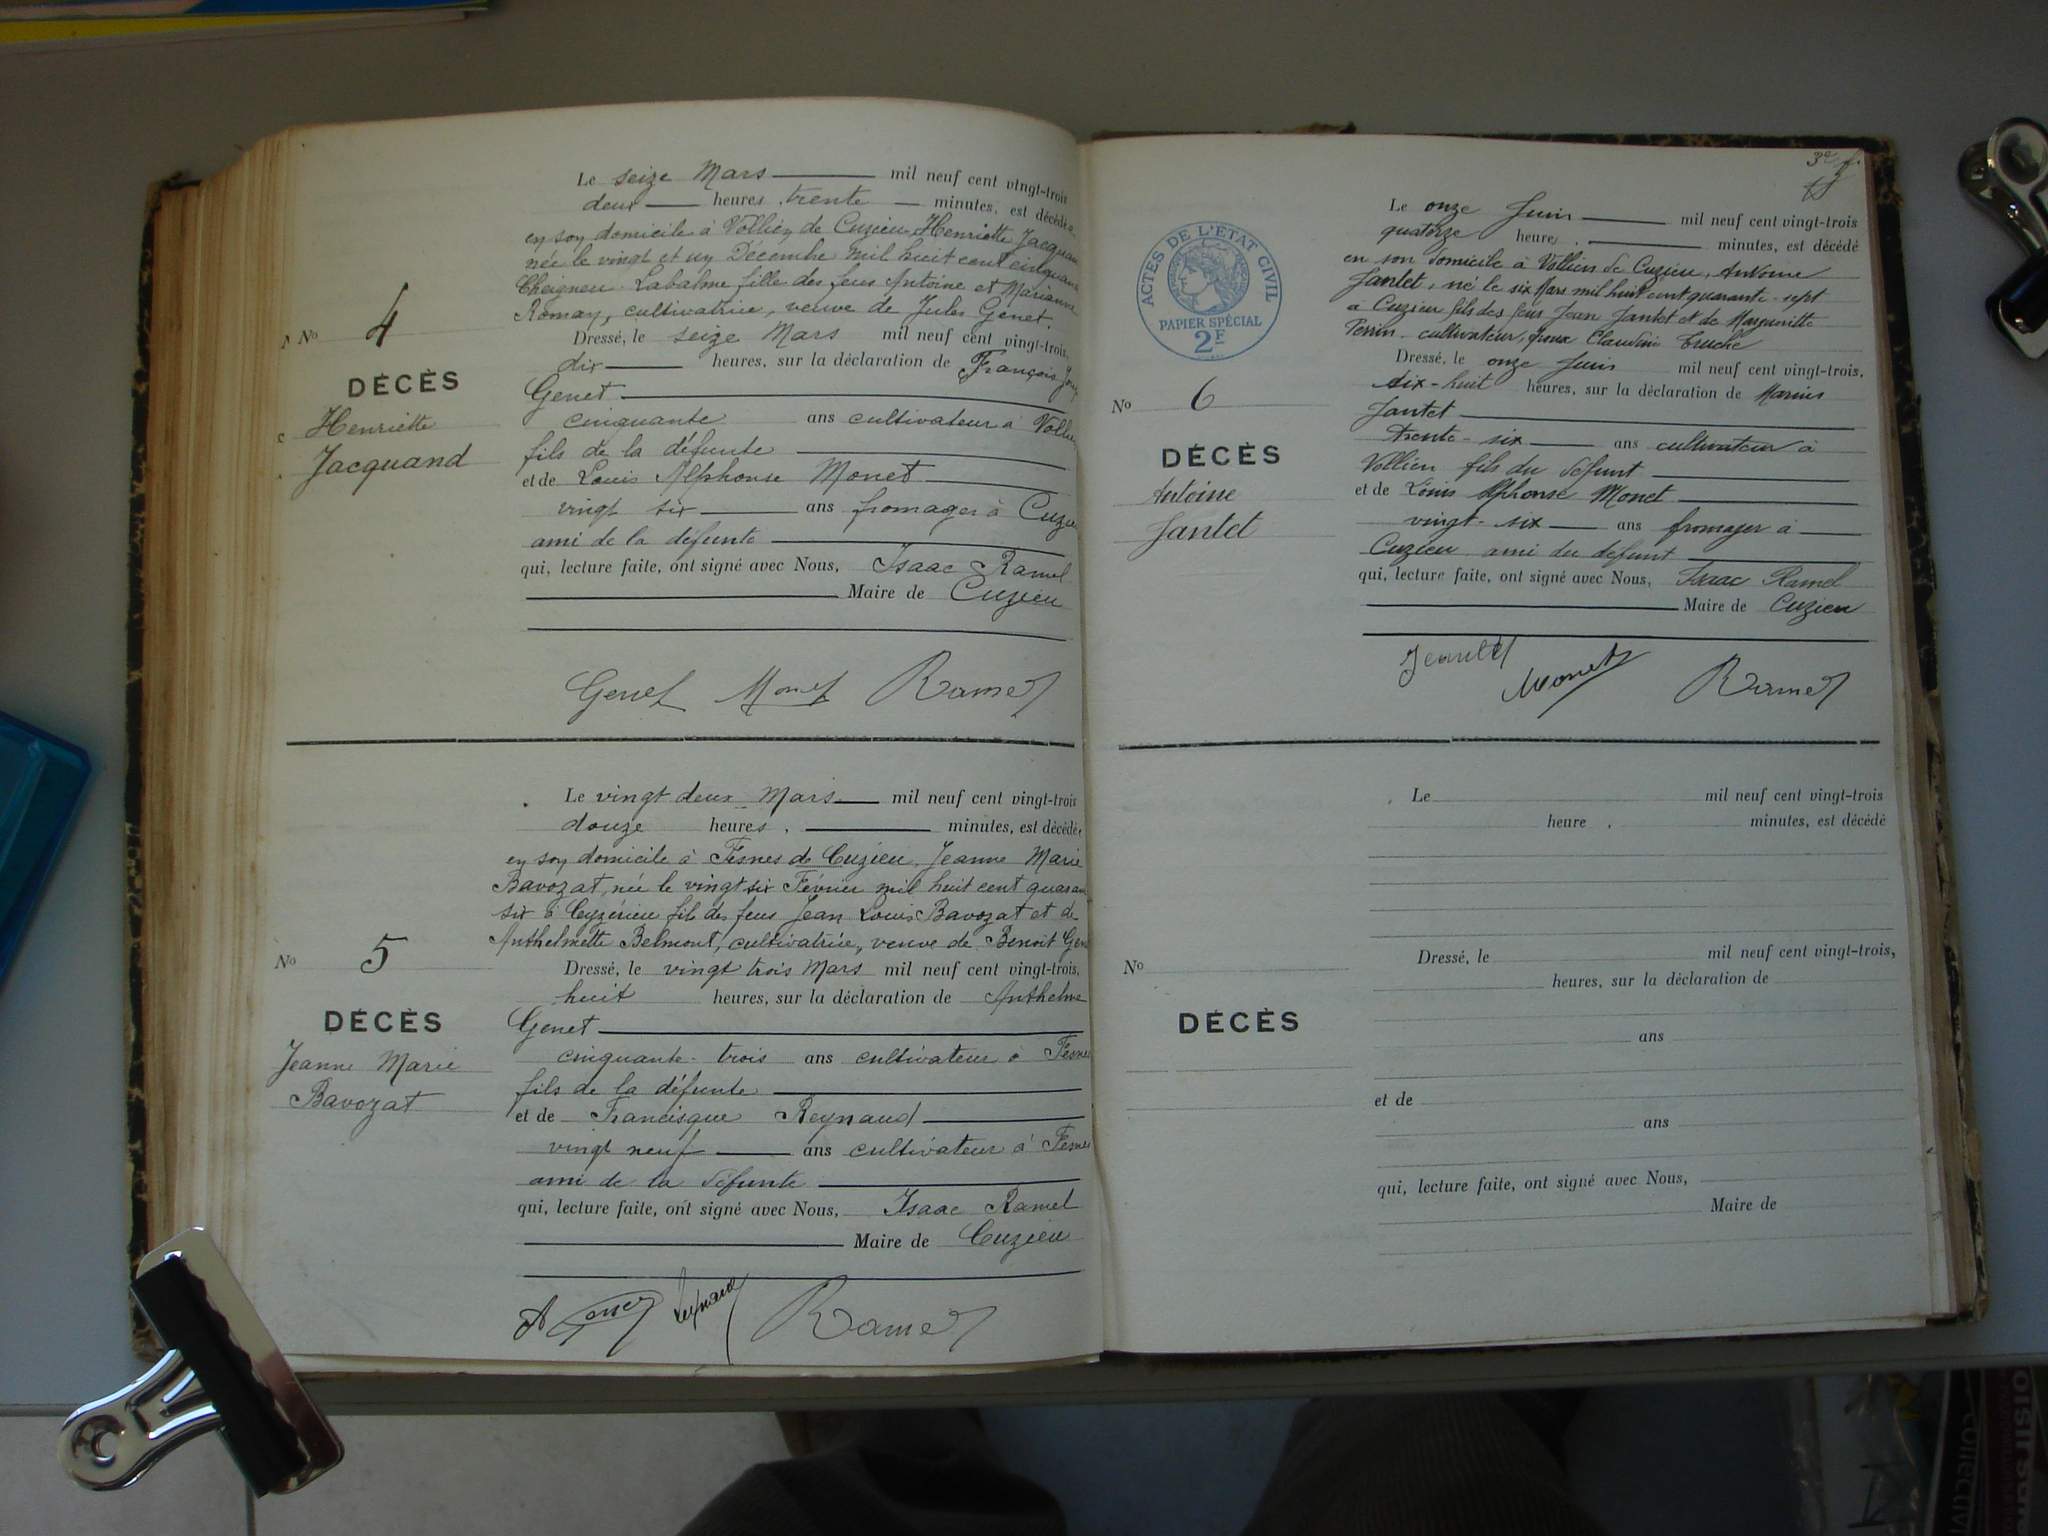 Le seize Mars mil neuf cent vingt-trois
deux heures, trente minutes, est décédée
en son domicile à Vollien de Cuzieu, Henriette Jacquan
née le vingt et un Décembre mil huit cent cinquan
Cheigneu Labalme fille des feus Antoine et Marianne
Romay, cultivatrice, veuve de Jules Genet.
Dressé, le seize Mars mil neuf cent vingt-trois,
dix heures, sur la déclaration de François
Genet
cinquante ans cultivateur à Vollien
fils de la défunte
et de Louis Alphonse Monet
vingt six ans fromager à Cuzieu
ami de la défunte
qui, lecture faite, ont signé avec Nous, Isaac Ramel
Maire de Cuzieu
No 4
DÉCÈS
Henriette
Jacquand
Genet Monet Ramel
Le vingt deux Mars mil neuf cent vingt-trois
douze heures, minutes, est décédée
en son domicile à Fesnes de Cuzieu, Jeanne Marie
Bavozat, née le vingt six Février mil huit cent quaran
six à Ceyzérieu fils des feus Jean Louis Bavozat et de
Anthelmette Belmont, cultivatrice, veuve de Benoit Gen
Dressé, le vingt trois Mars mil neuf cent vingt-trois,
huit heures, sur la déclaration de Anthelme
Genet
cinquante-trois ans cultivateur à Fesnes
fils de la défunte
et de Francisque Reynaud
vingt neuf ans cultivateur à Fesnes
ami de la défunte
qui, lecture faite, ont signé avec Nous, Isaac Ramel
Maire de Cuzieu
No 5
DÉCÈS
Jeanne Marie
Bavozat
A Genet Reynaud Ramel
3e f.
ACTES DE L'ETAT CIVIL
PAPIER SPÉCIAL
2F
Le onze Juin mil neuf cent vingt-trois
quatorze heure, minutes, est décédé
en son domicile à Vollien de Cuzieu, Antoine
Jantet, né le six Mars mil huit cent quarante-sept
à Cuzieu fils des feus Jean Jantet et de Marguerite
Perrin cultivateur, époux Claudine Truche
Dressé, le onze Juin mil neuf cent vingt-trois,
dix-huit heures, sur la déclaration de Marius
Jantet
trente-six ans cultivateur à
Vollien fils du défunt
et de Louis Alphonse Monet
vingt-six ans fromager à
Cuzieu ami du défunt
qui, lecture faite, ont signé avec Nous, Isaac Ramel
Maire de Cuzieu
No 6
DÉCÈS
Antoine
Jantet
Jantet Monet Ramel
Le mil neuf cent vingt-trois
heure, minutes, est décédé
Dressé, le mil neuf cent vingt-trois,
heures, sur la déclaration de
ans
et de
ans
qui, lecture faite, ont signé avec Nous,
Maire de
No
DÉCÈS